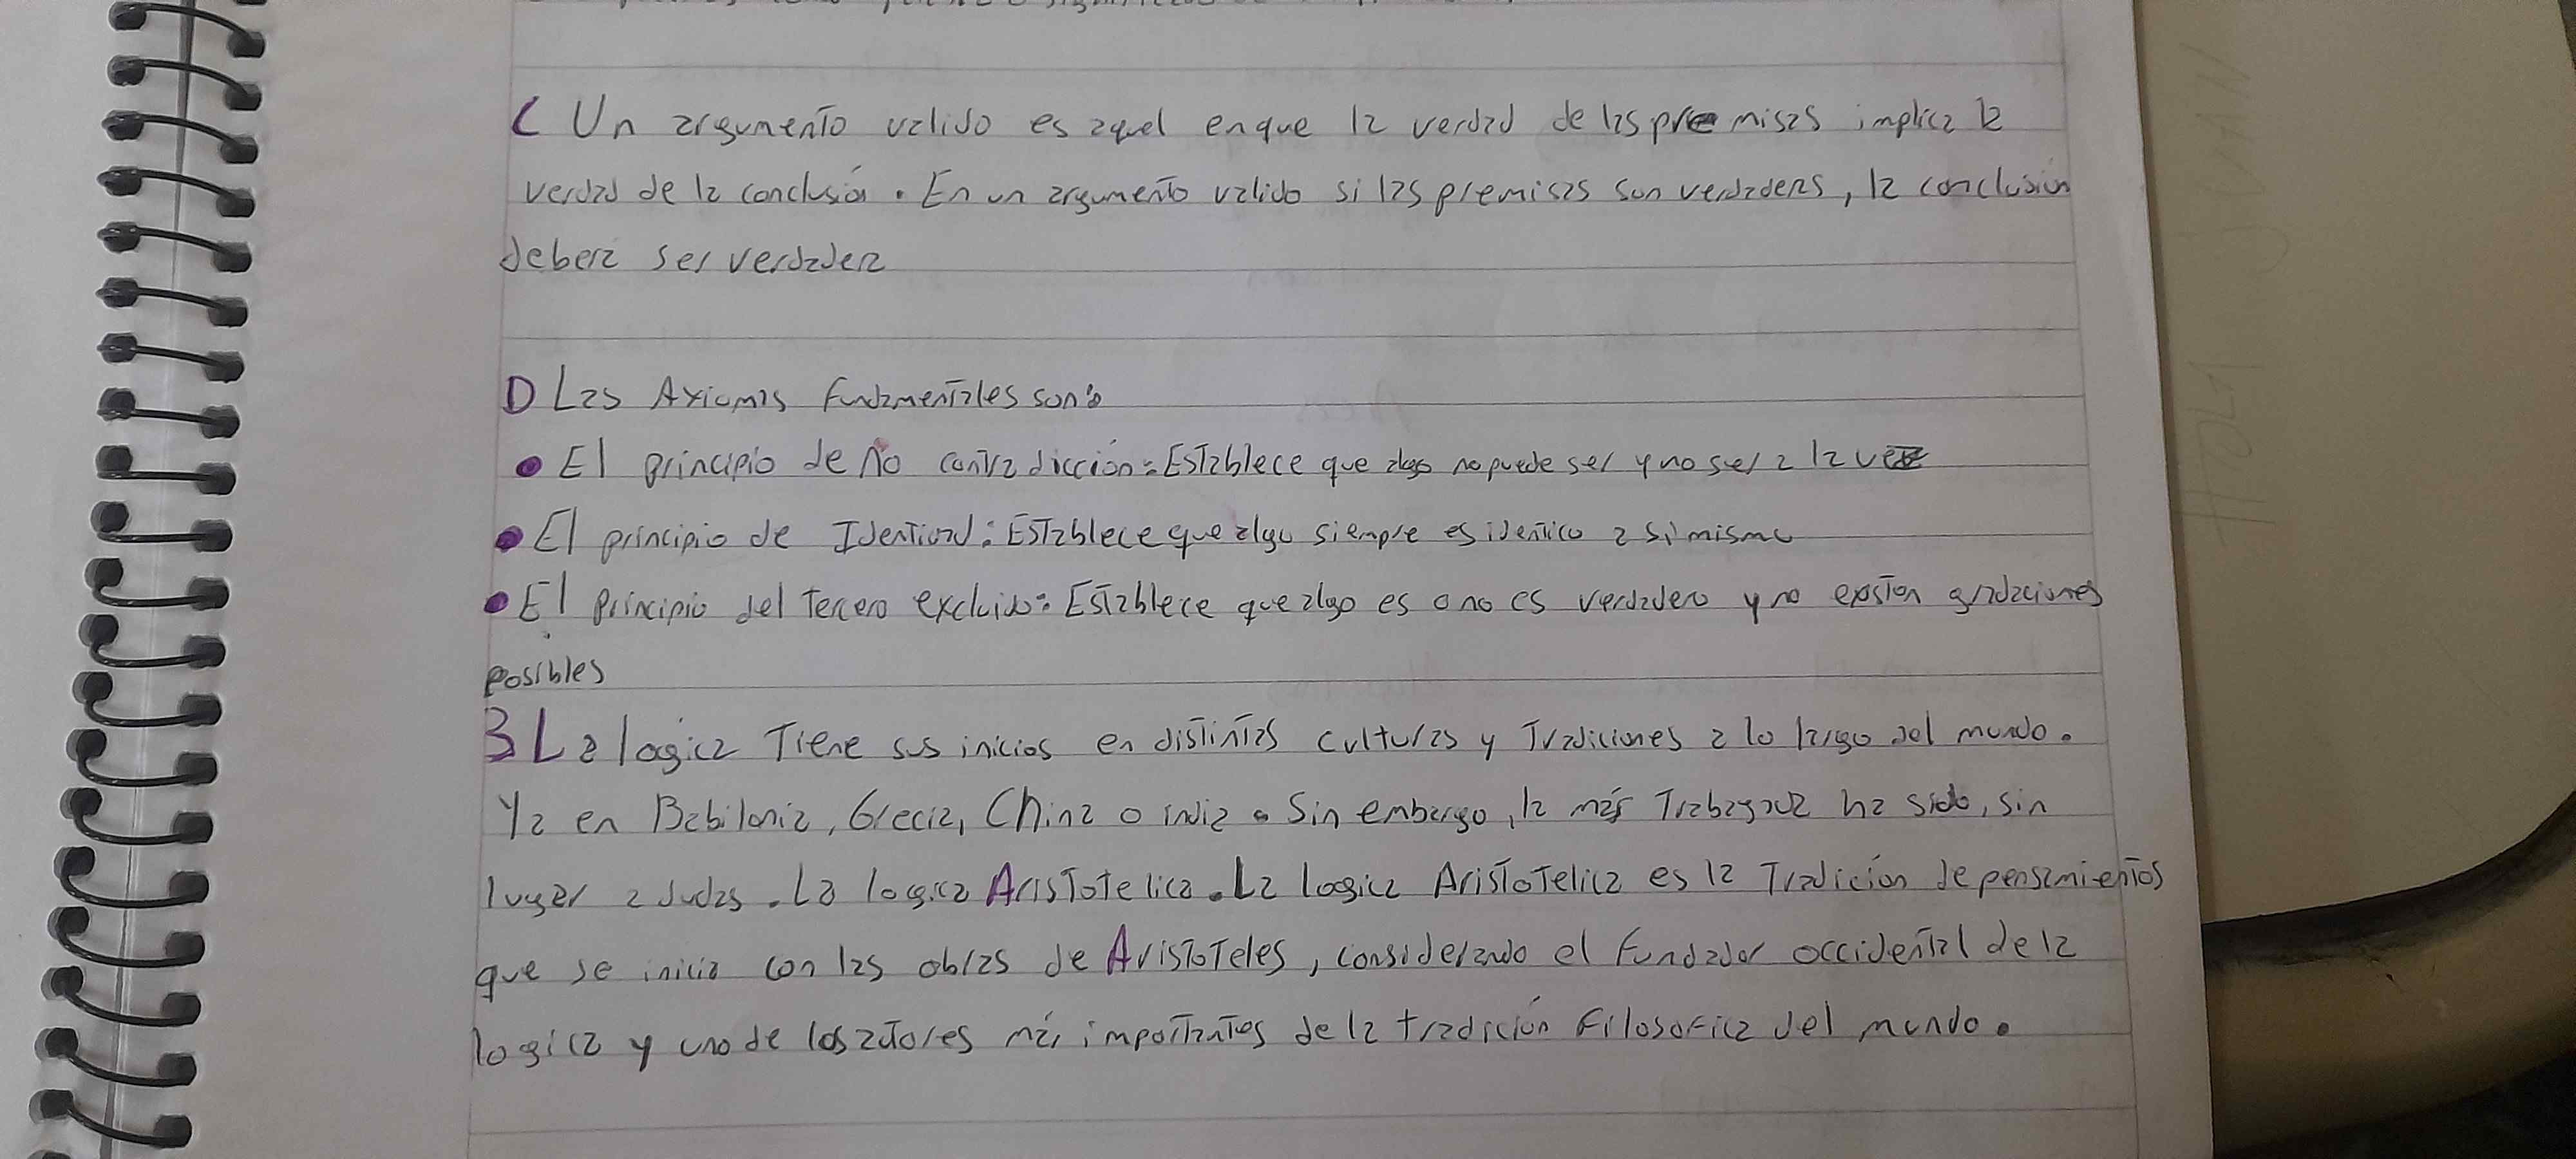 C Un argumento valido es aquel en que la verdad de las premisas implica la
verdad de la conclusión. En un argumento valido si las premisas son verdaderas, la conclusión
debera ser verdadera
D Las Axiomas Fundamentales son:
• El principio de No contradicción: Establece que algo no puede ser y no ser a la vez
• El principio de Identidad: Establece que algo siempre es identico a sí mismo
• El principio del tercero excluido: Establece que algo es o no es verdadero y no existen gradaciones
posibles
3 La logica Tiene sus inicios en distintas culturas y Tradiciones a lo largo del mundo.
Ya en Babilonia, Grecia, China o india. Sin embargo, la más Trabajada ha sido, sin
lugar a dudas. La logica Aristotelica. La logica Aristotelica es la Tradición de pensamientos
que se inicia con las obras de Aristoteles, considerando el fundador occidental de la
logica y uno de los autores más importantes de la tradición Filosofica del mundo.